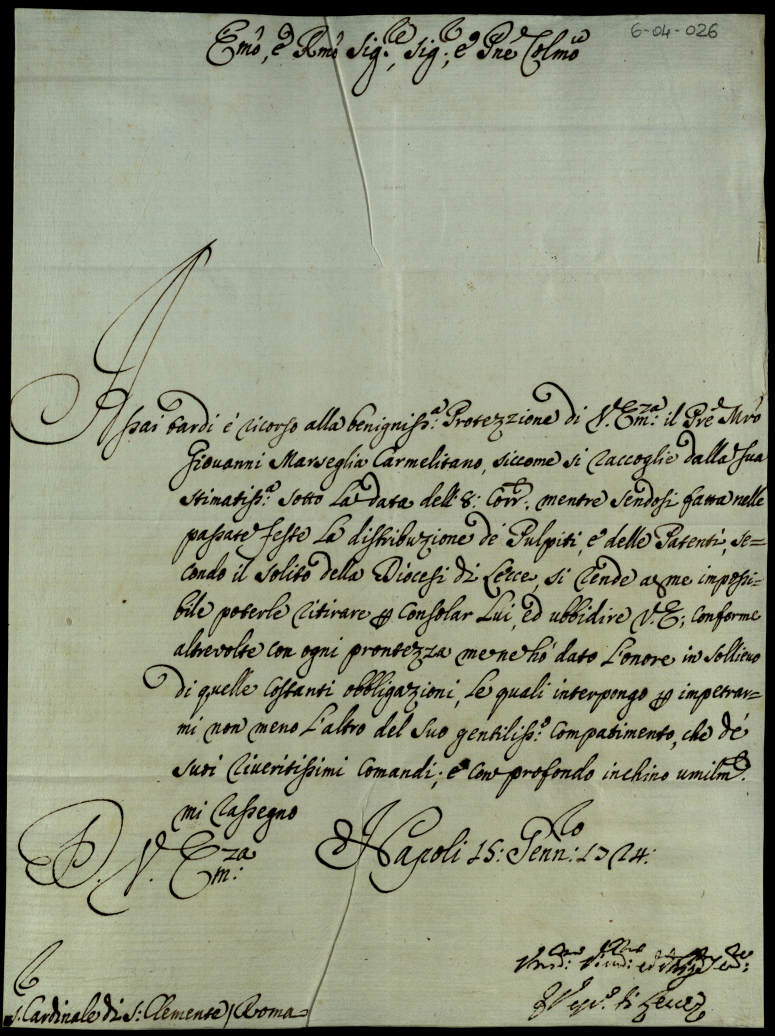 6-04-026
Emô, e Rmô Sig.re, Sig.r, e Pne Colmo
Assai tardi è ricorso alla benigniss.a Protezzione di V. Em.za: il Pre Mrô
Giovanni Marseglia Carmelitano, siccome si raccoglie dalla sua
stimatiss.a sotto la data dell' 8: Corr.e, mentre sendosi fatta nelle
passate feste la distribuzione de' Pulpiti, e delle Patenti, se=
condo il solito della Diocesi di Lecce, si rende a me impossi=
bile poterle ritirare per consolar Lui, ed ubbidire V. E; conforme
altrevolte con ogni prontezza mene hò dato l'onore in sollievo
di quelle costanti obbligazioni, le quali interpongo per impetrar=
mi non meno l'altro del suo gentiliss.o compatimento, che de'
suoi riveritissimi comandi; e con profondo inchino umilm.e
mi rassegno
D. V. Em.za: Napoli 15: Genn.o: 1724:
S. Cardinale di S: Clemente / Roma
Il Vesc.o di Lecce